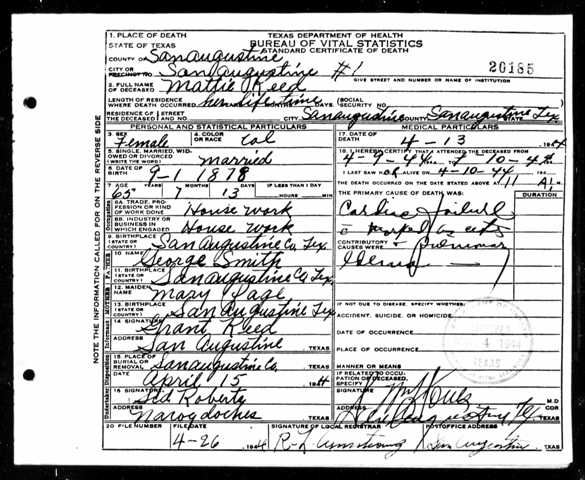 1. PLACE OF DEATH TEXAS DEPARTMENT OF HEALTH
STATE OF TEXAS BUREAU OF VITAL STATISTICS
COUNTY OF San Augustine STANDARD CERTIFICATE OF DEATH
20185
CITY OR PRECINCT NO. San Augustine #1
GIVE STREET AND NUMBER OR NAME OF INSTITUTION
2. FULL NAME OF DECEASED Mattie Reed
LENGTH OF RESIDENCE WHERE DEATH OCCURRED her lifetime DAYS. (SOCIAL SECURITY NO.
RESIDENCE OF THE DECEASED STREET AND NO. CITY San Augustine COUNTY San Augustine STATE Tex.
PERSONAL AND STATISTICAL PARTICULARS
3. SEX Female 4. COLOR OR RACE Col
5. SINGLE, MARRIED, WIDOWED OR DIVORCED (WRITE THE WORD) married
6. DATE OF BIRTH 9-1 1878
7. AGE YEARS MONTHS DAYS IF LESS THAN 1 DAY
65 7 13 HOURS MIN.
8A. TRADE, PROFESSION OR KIND OF WORK DONE House work
8B. INDUSTRY OR BUSINESS IN WHICH ENGAGED House work
9. BIRTHPLACE (STATE OR COUNTRY) San Augustine Co, Tex.
10. NAME George Smith
11. BIRTHPLACE (STATE OR COUNTRY) San Augustine Co Tex,
12. MAIDEN NAME Mary
13. BIRTHPLACE (STATE OR COUNTRY) San Augustine Tex
14. SIGNATURE Grant Reed
ADDRESS San Augustine TEXAS
15. PLACE OF BURIAL OR REMOVAL San Augustine Co. TEXAS
DATE April 15 1944
16. SIGNATURE Ted Roberts
ADDRESS Nacogdoches TEXAS
MEDICAL PARTICULARS
17. DATE OF DEATH 4-13 1944
18. I HEREBY CERTIFY THAT I ATTENDED THE DECEASED FROM
4-9-44 10-44
I LAST SAW ALIVE ON 4-10-44
THE DEATH OCCURRED ON THE DATE STATED ABOVE AT 11 A M.
THE PRIMARY CAUSE OF DEATH WAS: DURATION
Cardiac
CONTRIBUTORY CAUSES WERE
IF NOT DUE TO DISEASE, SPECIFY WHETHER:
ACCIDENT, SUICIDE, OR HOMICIDE
DATE OF OCCURRENCE
PLACE OF OCCURRENCE
MANNER OR MEANS
IF RELATED TO OCCUPATION OF DECEASED, SPECIFY
M.D.
COR.
TEXAS
20 FILE NUMBER FILE DATE SIGNATURE OF LOCAL REGISTRAR POSTOFFICE ADDRESS
4-26 1944 R. L. Armstrong San Augustine TEXAS
NOTE THE INFORMATION CALLED FOR ON THE REVERSE SIDE
FATHER
MOTHER
Informant